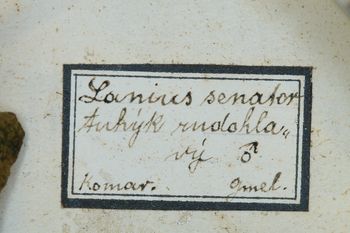 Lanius senator
Ťuhýk rudohla„
vý ♂
Komar. Gmel.